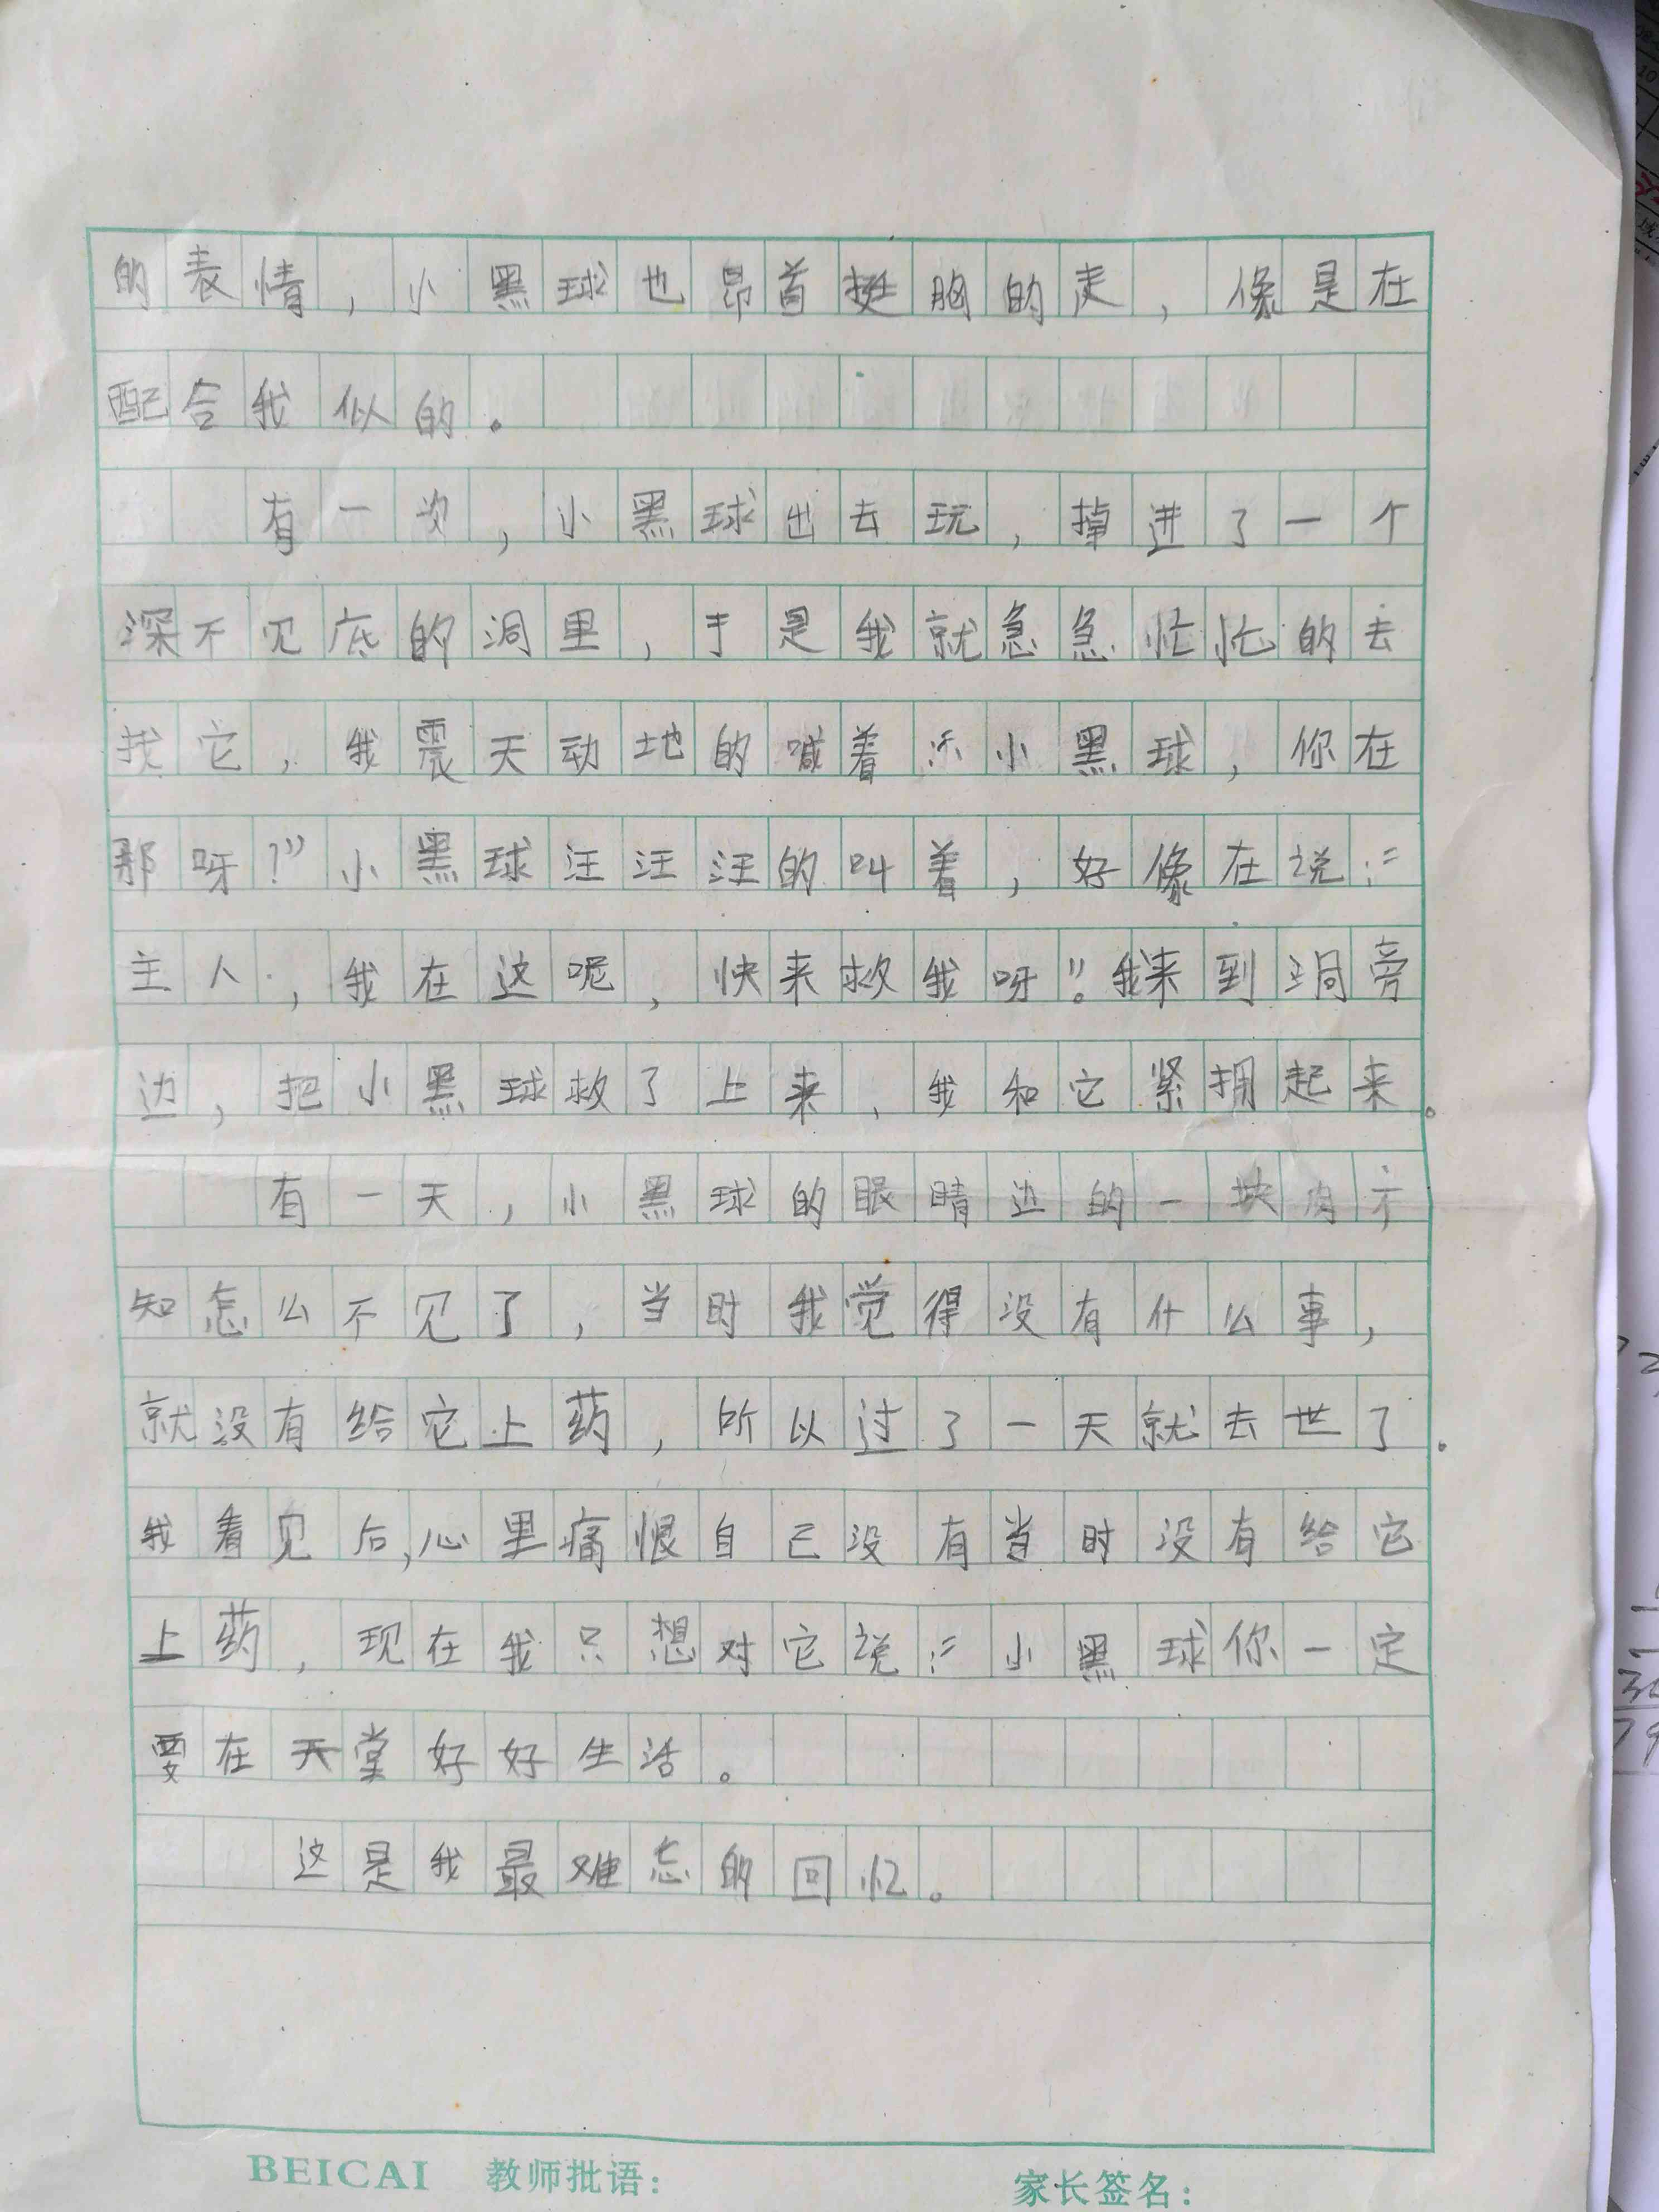 的表情，小黑球也昂首挺胸的走，像是在
配合我似的。
有一次，小黑球出去玩，掉进了一个
深不见底的洞里，于是我就急急忙忙的去
找它，我震天动地的喊着：“小黑球，你在
那呀？”小黑球汪汪汪的叫着，好像在说：“
主人，我在这呢，快来救我呀”。我来到洞旁
边，把小黑球救了上来，我和它紧拥起来。
有一天，小黑球的眼睛边的一块肉不
知怎么不见了，当时我觉得没有什么事，
就没有给它上药，所以过了一天就去世了。
我看见后，心里痛恨自己没有当时没有给它
上药，现在我只想对它说：“小黑球你一定
要在天堂好好生活。
这是我最难忘的回忆。
BEICAI 教师批语： 家长签名：